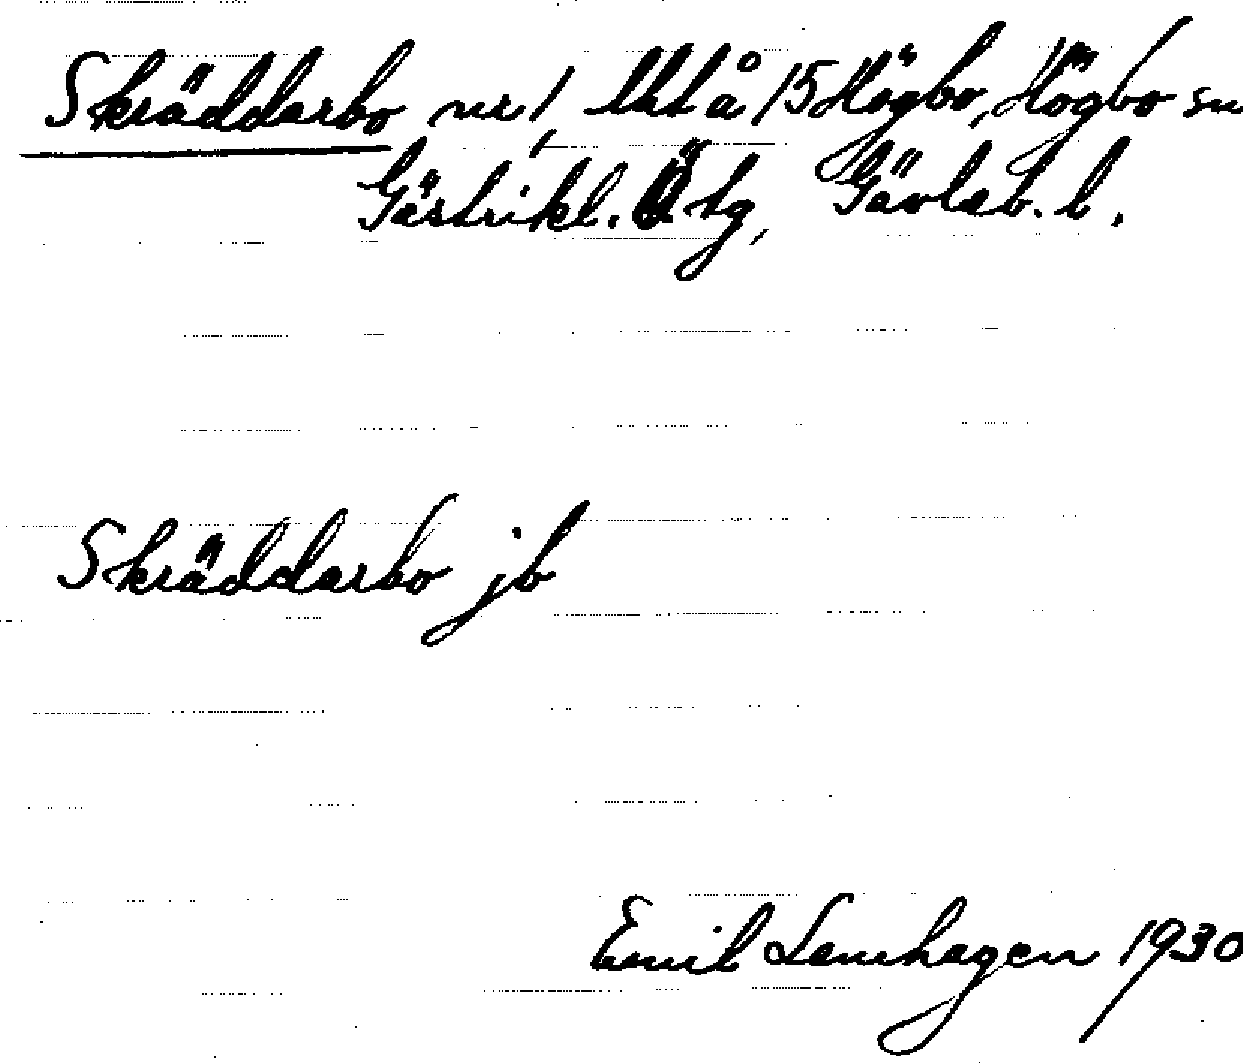 Skräddarbo nr 1, Utd å 15 Högbo, Högbo sn
Gästrikl. Ö. tg, Gävleb. l.
Skräddarbo jb
Emil Lamhagen 1930